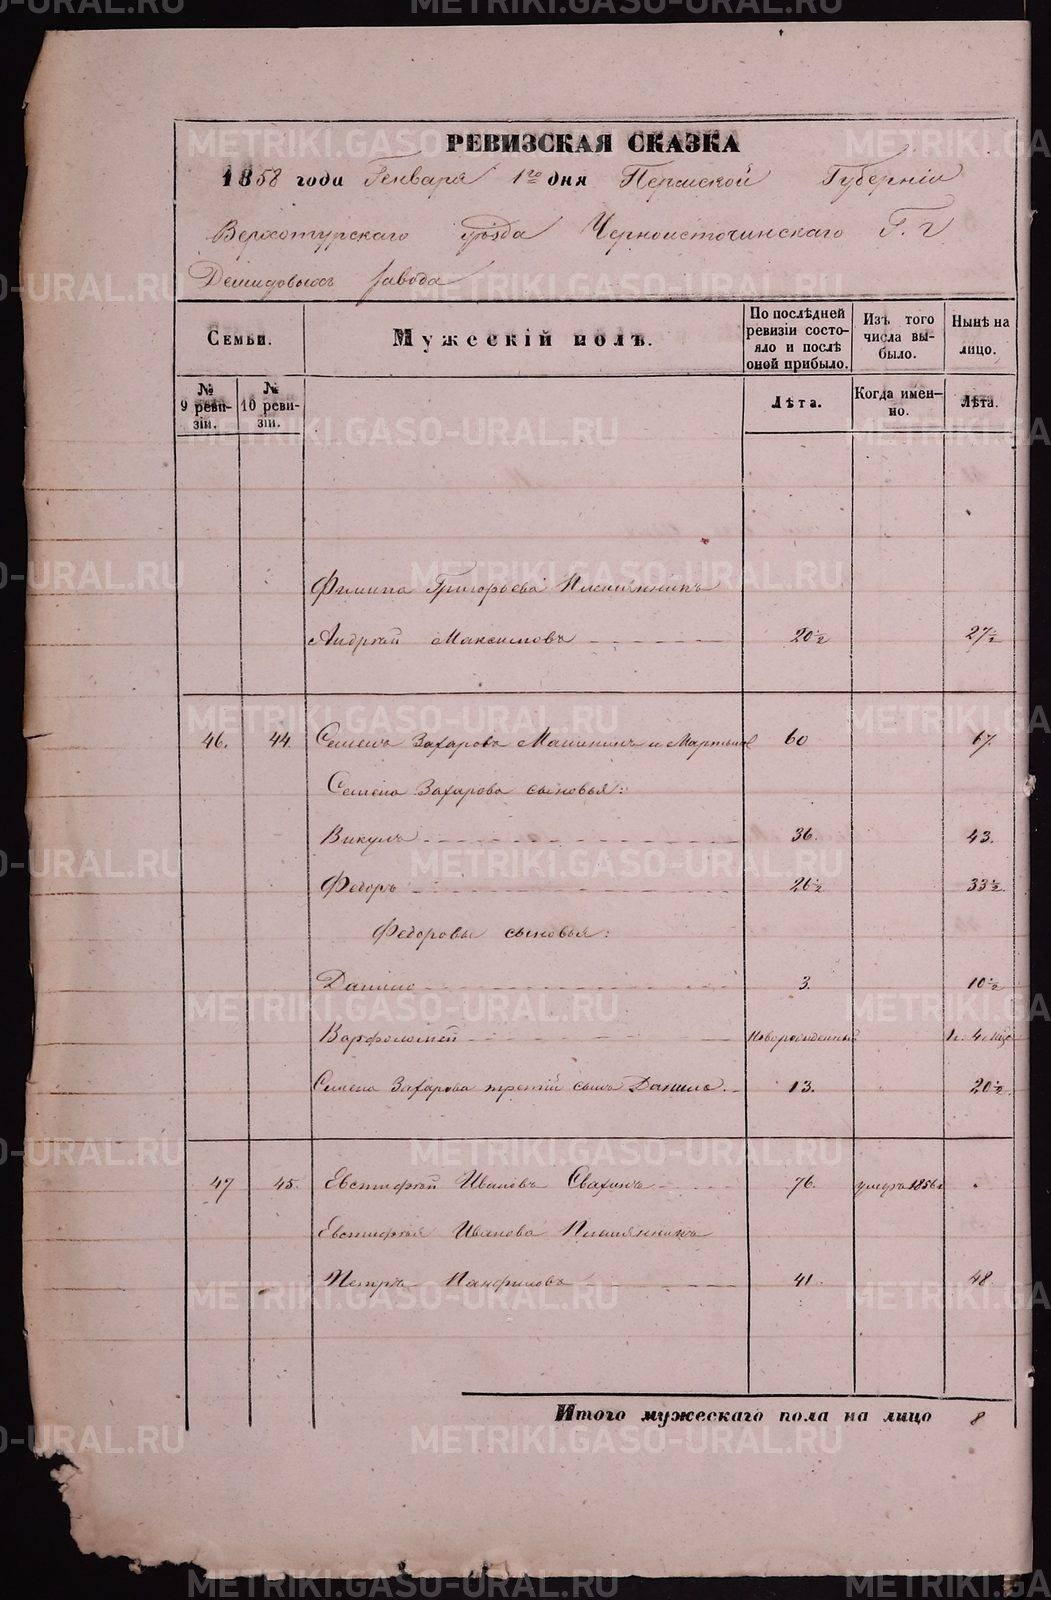 METRIKI.GASO-URAL.RU
РЕВИЗСКАЯ СКАЗКА
1858 года Генваря 1го дня Пермской Губерніи
Верхотурскаго Уѣзда Черноисточинскаго Г. г
Демидовыхъ завода
Семьи.
Мужескій полъ.
По послѣдней ревизіи состояло и послѣ оной прибыло.
Изъ того числа выбыло.
Нынѣ на лицо.
№ 9 ревизіи.
№ 10 ревизіи.
Лѣта.
Когда именно.
Лѣта.
Филипа Григорьева Племянникъ
Андрей Максимовъ 20½ 27½
46. 44. Семенъ Захаровъ Машинин и Мартынов 60 67.
Семена Захарова сыновья:
Викулъ 36. 43.
Федоръ 26½ 33½
Федоровы сыновья:
Данило 3. 10½
Варфоломей Новорожденный
Семена Захарова третій сынъ Данилъ 13. 20½
47 45. Евстифей Ивановъ 76. умеръ 1856
Евстифея Иванова Племянникъ
Петръ Панфиловъ 41. 48.
Итого мужескаго пола на лицо 8